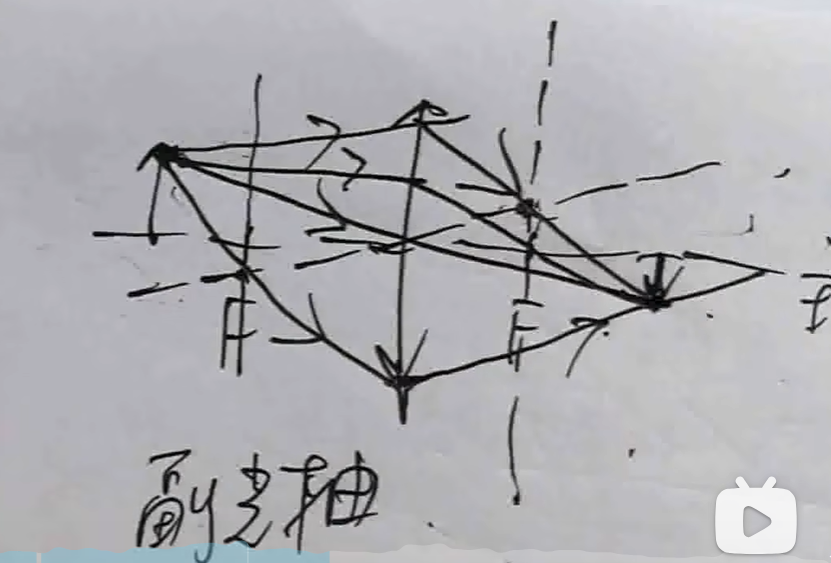 F
F
副光轴